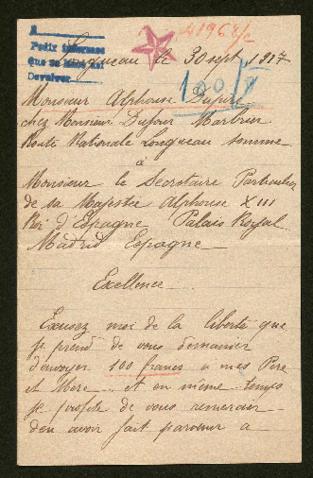 A
Pedir informes
que se hizo así
Devolver
41968/c
Longueau le 30 sept 1917
100 f
Monsieur Alphonse Dupire
chez Monsieur Dufour Marbrier
Route Nationale Longueau Somme
à
Monsieur le Secrétaire Particulier
de sa Majestée Alphonse XIII
Roi d'Espagne Palais Royal
Madrid Espagne
Excellence
Excusez moi de la liberté que
je prend de vous demander
d'envoyer 100 francs a mes Père
et Mère et en même temps
je profite de vous remercier
d'en avoir fait parvenir a